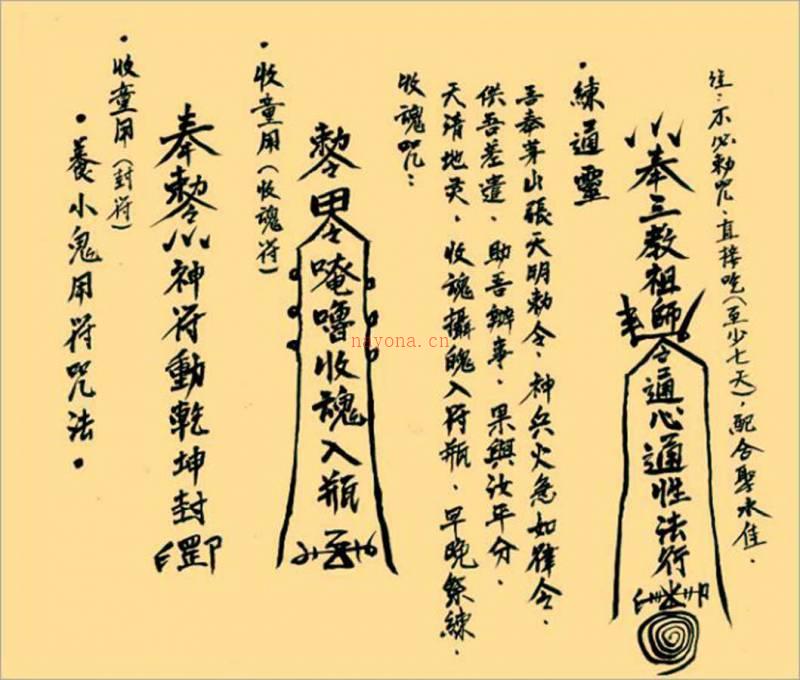 •養小鬼用符咒法•
•收童用(封符)
奉勅令神符動乾坤封罡
•收童用(收魂符)
勅令唵嚕收魂入瓶
收魂咒：
天清地灵，收魂攝魄入符瓶，早晚祭練，
供吾差遣，助吾辦事，果與汝年分，
吾奉茅山張天明勅令，神兵火急如律令，
•練通靈
奉三教祖師令通心通性法行
注：不必勅咒，直接吃(至少七天)，配合聖水佳，
nayona.cn